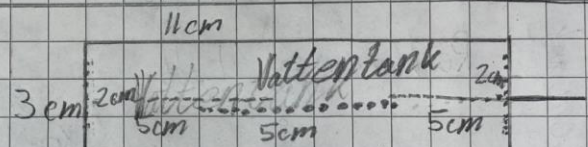 11cm
Vattentank
3cm 2cm 2cm
5cm 5cm 5cm